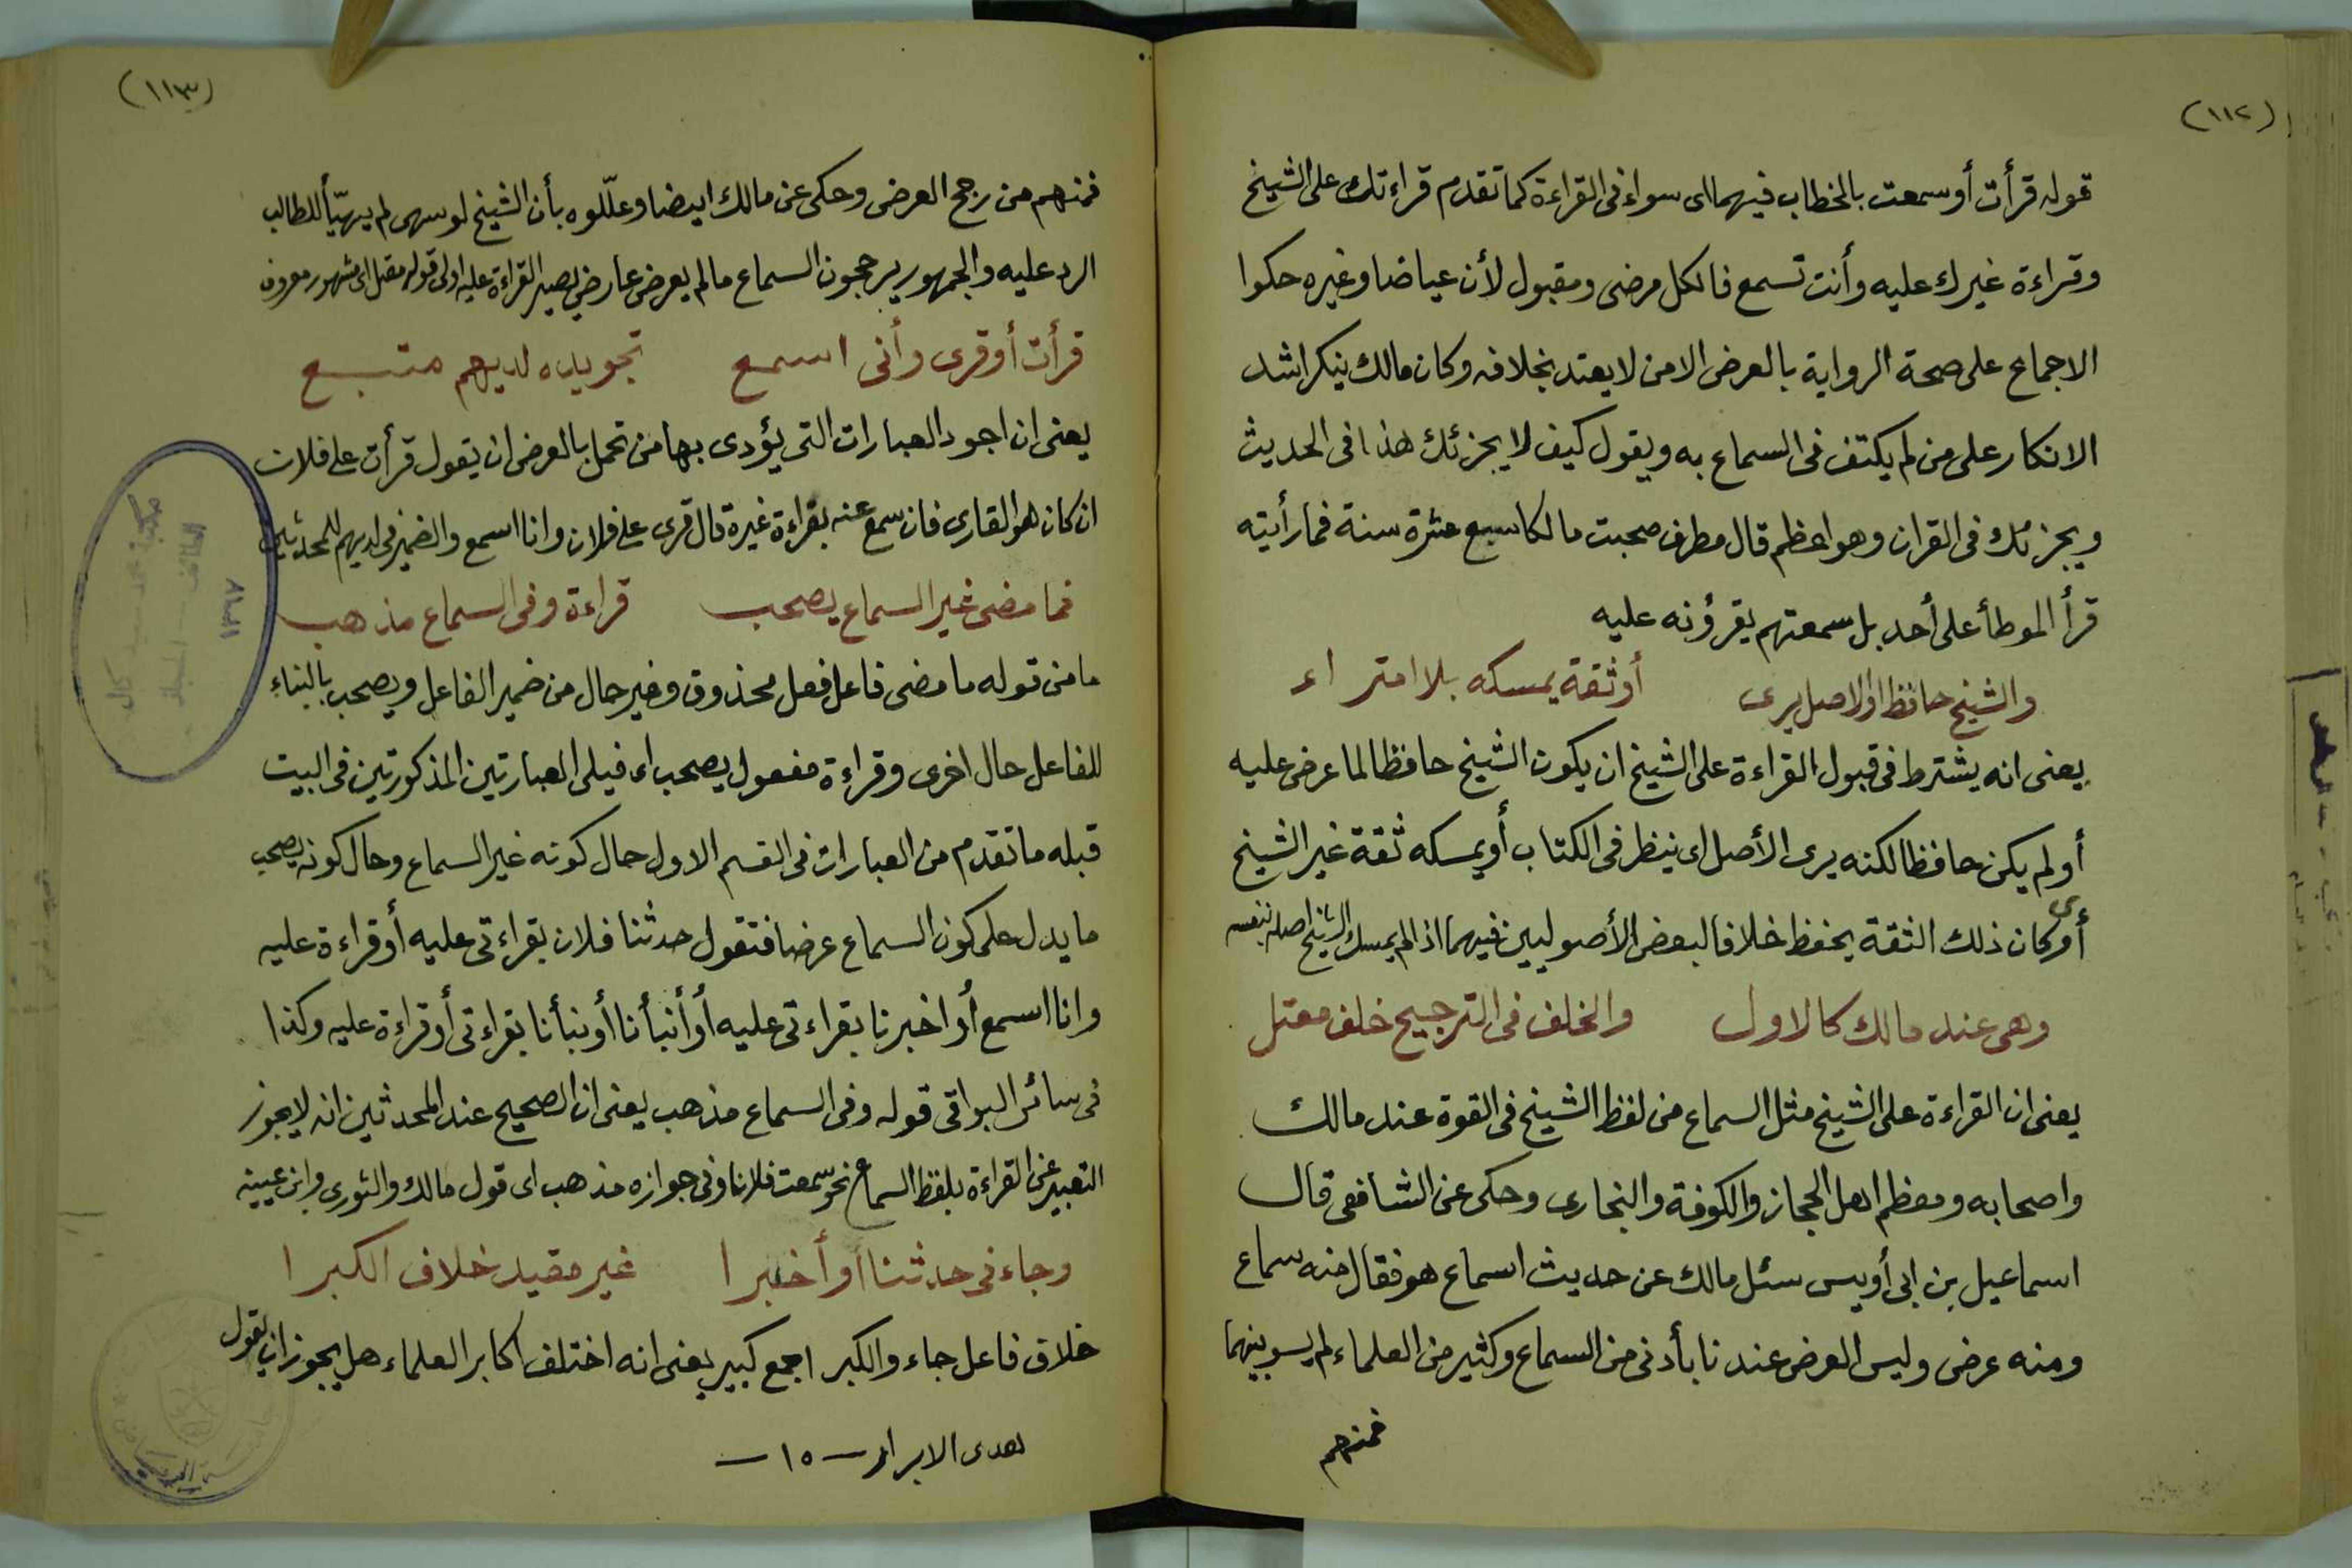 (١١٢)
قوله قرأت أو سمعت بالخطاب فيهما اى سواء فى القراءة كما تقدم قراءتك على الشيخ
وقراءة غيرك عليه وأنت تسمع فالكل مرضى ومقبول لأن عياضا وغيره حكوا
الاجماع على صحة الرواية بالعرض الا من لا يعتد بخلافه وكان مالك ينكر اشد
الانكار على من لم يكتف فى السماع به ويقول كيف لا يجزئك هذا فى الحديث
ويجزئك فى القران وهو اعظم قال مطرف صحبت مالكا سبع عشرة سنة فما رأيته
قرأ الموطأ على أحد بل سمعتهم يقرؤنه عليه
والشيخ حافظ او الاصل يرى أو ثقة يمسكه بلا امتراء
يعنى انه يشترط فى قبول القراءة على الشيخ ان يكون الشيخ حافظا لما عرض عليه
أو لم يكن حافظا لكنه يرى الأصل اى ينظر فى الكتاب أو يمسكه ثقة غير الشيخ
أو كان ذلك الثقة يحفظ خلافا لبعض الأصوليين فيهما اذا لم يمسك الشيخ اصله بنفسه
وهى عند مالك كالاول والخلف فى الترجيح خلف معتل
يعنى ان القراءة على الشيخ مثل السماع من لفظ الشيخ فى القوة عند مالك
واصحابه ومعظم اهل الحجاز والكوفة والبخارى وحكى عن الشافعى قال
اسماعيل بن ابى أويس سئل مالك عن حديث اسماع هو فقال منه سماع
ومنه عرض وليس العرض عندنا بأدنى من السماع وكثير من العلماء لم يسو بينهما
فمنهم
(١١٣)
فمنهم من رجح العرض وحكى عن مالك ايضا وعلّلوه بأن الشيخ لو سهى لم يهيّأ للطالب
الرد عليه والجمهور يرجحون السماع ما لم يعرض عارض يصير القراءة عليه اولى قوله مقبل اى مشهور معروف
قرأت أو قرى وأنى اسمع تجويده لديهم متبع
يعنى ان اجود العبارات التى يؤدى بها من تحمل بالعرض ان يقول قرأت على فلان
ان كان هو القارى فان سمع عنه بقراءة غيره قال قرى على فلان وانا اسمع والضمير فى لديهم للمحدثين
فما مضى غير السماع يصحب قراءة وفى السماع مذهب
ما من قوله ما مضى فاعل فعل محذوف وغير حال من ضمير الفاعل ويصحب بالبناء
للفاعل حال اخرى وقراءة مفعول يصحب اى فيلى العبارتين المذكورتين فى البيت
قبله ما تقدم من العبارات فى القسم الاول حال كونه غير السماع وحال كونه يصحب
ما يدل على كون السماع عرضا فتقول حدثنا فلان بقراءتى عليه أو قراءة عليه
وانا اسمع أو اخبرنا بقراءتى عليه أو أنبأنا أو نبأنا بقراءتى أو قراءة عليه وكذا
فى سائر البواقى قوله وفى السماع مذهب يعنى ان الصحيح عند المحدثين انه لا يجوز
التعبير عن القراءة بلفظ السماع نحو سمعت فلانا وفى جوازه مذهب اى قول مالك والثورى وابن عيينه
وجاء فى حدثنا أو أخبرا غير مقيد خلاف الكبرا
خلاف فاعل جاء والكبر اجمع كبير يعنى انه اختلف اكابر العلماء هل يجوز ان يقول
هدى الابرار — ١٥ —